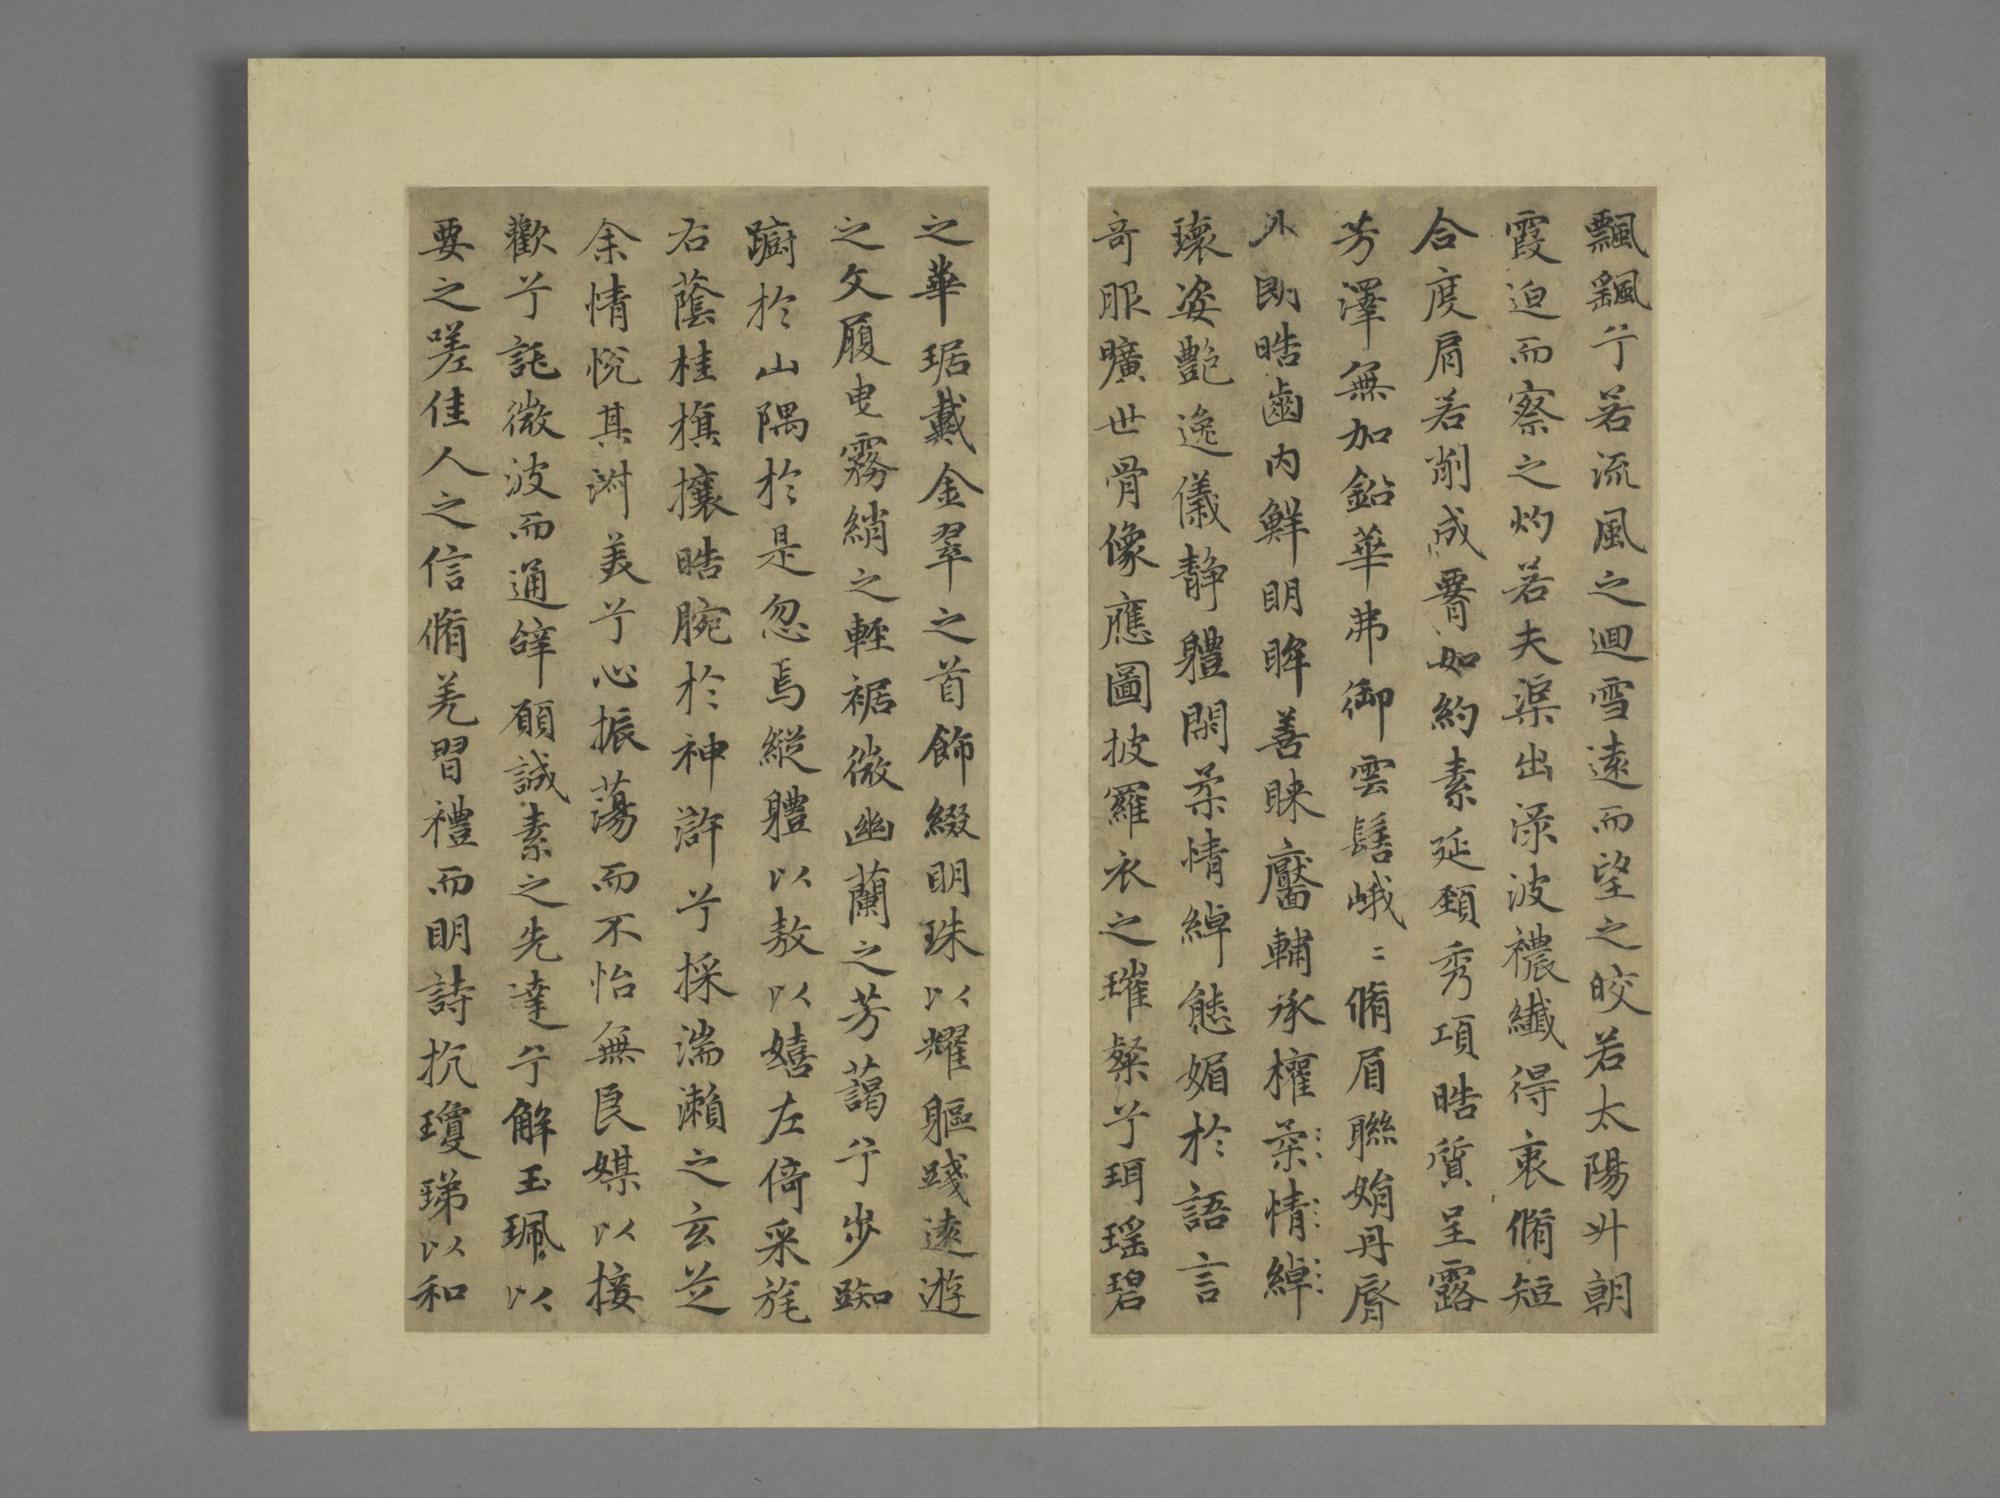 飄飖兮若流風之迴雪遠而望之皎若太陽升朝
霞迫而察之灼若夫渠出渌波襛纖得衷脩短
合度肩若削成䙅如約素延頸秀項晧質呈露
芳澤無加鉛華弗御雲髻峨〻脩眉聯娟丹脣
外朗晧齒內鮮明眸善睐靨輔承權柔情綽
瓌姿艷逸儀静軆閑柔情綽態媚於語言
奇服曠世骨像應圖披羅衣之璀粲兮珥瑶碧
之華琚戴金翠之首飾綴明珠以耀軀踐遠遊
之文履曳霧綃之輕裾微幽蘭之芳藹兮步踟
躕於山隅於是忽焉縱軆以敖以嬉左倚采旄
右蔭桂旗攘晧腕於神滸兮採湍瀨之玄芝
余情悅其淑美兮心振蕩而不怡無良媒以接
歡兮託微波而通辝願誠素之先達兮解玉珮以
要之嗟佳人之信脩羌習禮而明詩抗瓊珶以和